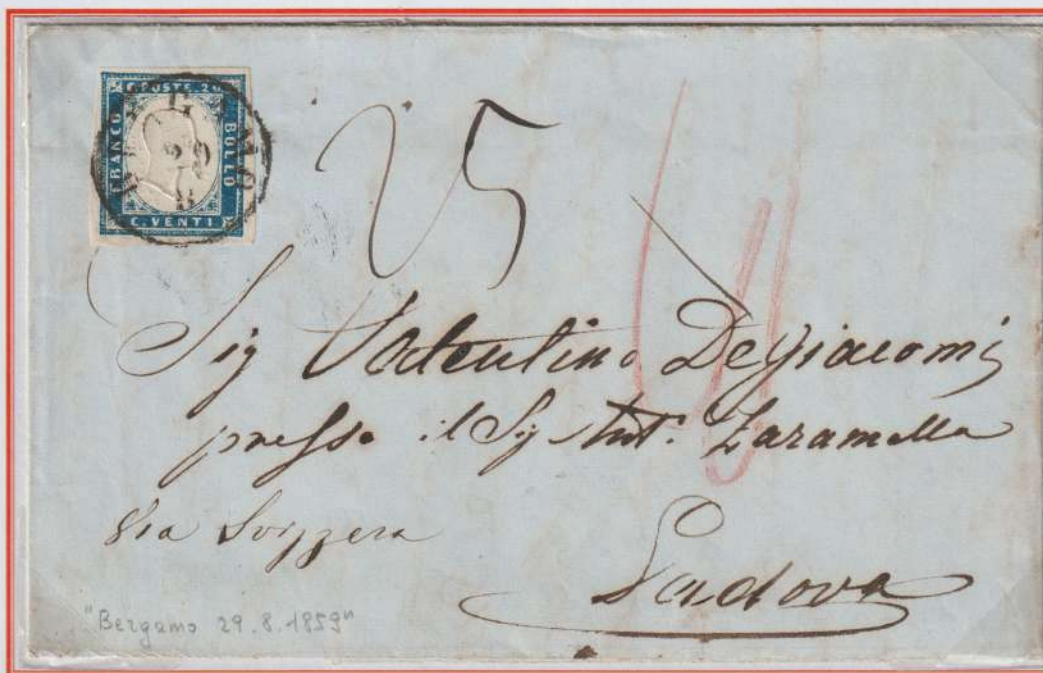 C. POSTE 20
FRANCO
BOLLO
C. VENTI
BERGAMO
29
8
25
Sig Valentino DeGiacomi
presso il Sig Ant. Zaramella
Via Svizzera
Padova
"Bergamo 29.8.1859"